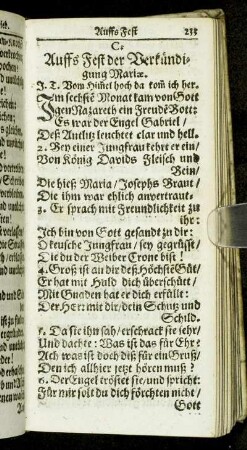 Auffs Fest 233
C.
Auffs Fest der Verkündi-
gung Mariæ.
J. T. Vom Him̃el hoch da kom̃ ich her.
Im sechstē Monat kam von Gott
Jgen Nazareth ein Freudē Bott:
Es war der Engel Gabriel/
Deß Antlitz leuchtet clar und hell.
2. Bey einer Jungfrau kehrt er ein/
Von König Davids Fleisch und
Bein/
Die hieß Maria/ Josephs Braut/
Die ihm war ehlich anvertraut.
3. Er sprach mit Freundlichkeit zu
ihr:
Ich bin von Gott gesandt zu dir:
O keusche Jungfrau/ sey gegrüsst/
Die du der Weiber Crone bist!
4. Groß ist an dir deß Höchstē Güt/
Er hat mit Huld dich überschütt/
Mit Gnaden hat er dich erfüllt:
Der Herr mit dir/ dein Schutz und
Schild.
5. Da sie ihn sah/ erschrack sie sehr/
Und dachte: Was ist das für Ehr?
Ach was ist doch diß für ein Gruß/
Den ich allhier jetzt hören muß?
6. Der Engel tröstet sie/ und spricht:
Für mir solt du dich förchten nicht/
Gott